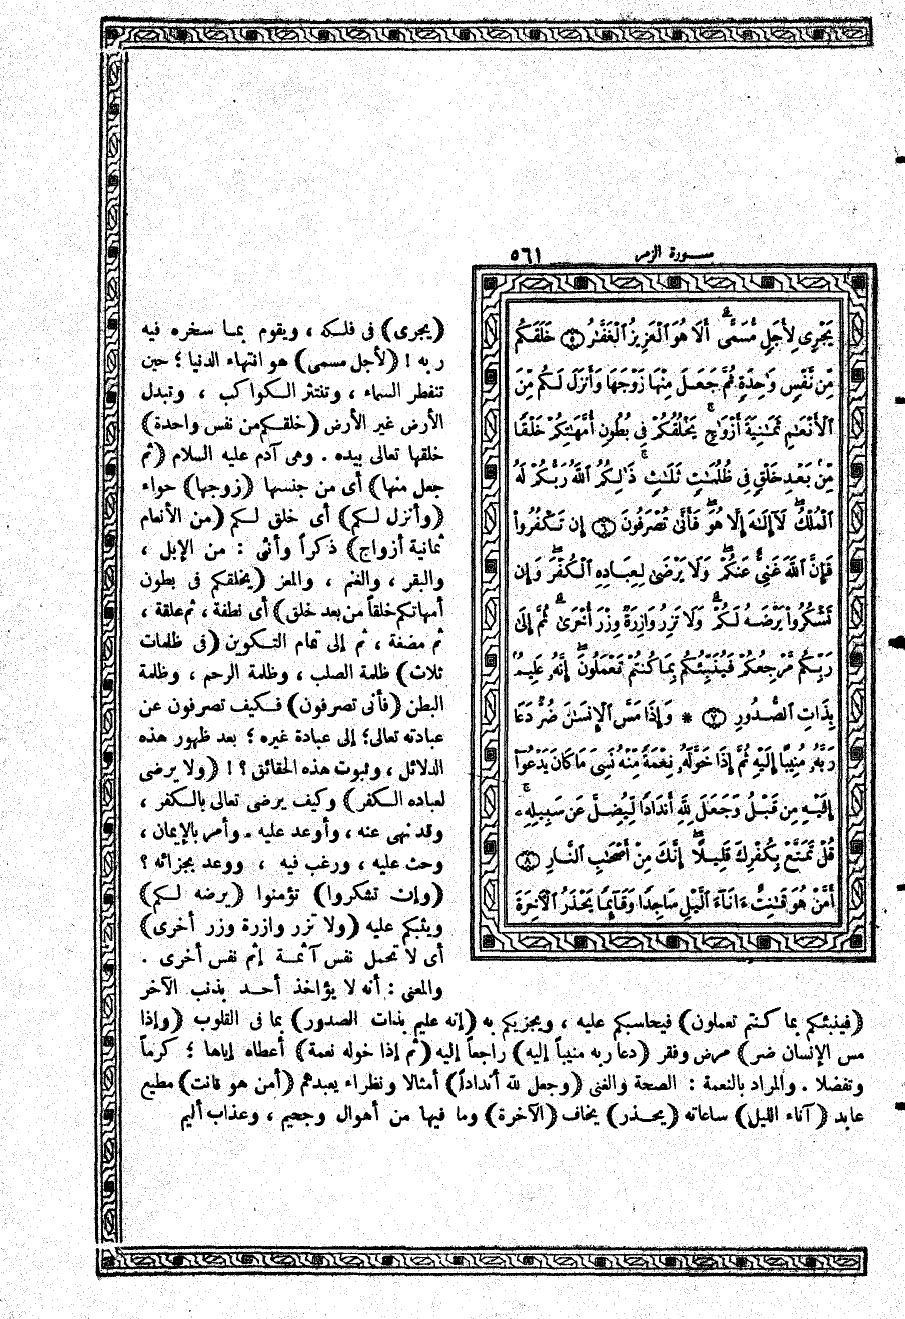 سورة الزمر ٥٦١
يَجْرِى لِأَجَلٍ مُّسَمًّىۗ أَلَا هُوَ ٱلْعَزِيزُ ٱلْغَفَّٰرُ ۝٥ خَلَقَكُم
مِّن نَّفْسٍ وَٰحِدَةٍ ثُمَّ جَعَلَ مِنْهَا زَوْجَهَا وَأَنزَلَ لَكُم مِّنَ
ٱلْأَنْعَٰمِ ثَمَٰنِيَةَ أَزْوَٰجٍۚ يَخْلُقُكُمْ فِى بُطُونِ أُمَّهَٰتِكُمْ خَلْقًا
مِّنۢ بَعْدِ خَلْقٍ فِى ظُلُمَٰتٍ ثَلَٰثٍۚ ذَٰلِكُمُ ٱللَّهُ رَبُّكُمْ لَهُ
ٱلْمُلْكُۖ لَآ إِلَٰهَ إِلَّا هُوَۖ فَأَنَّىٰ تُصْرَفُونَ ۝٦ إِن تَكْفُرُوا۟
فَإِنَّ ٱللَّهَ غَنِىٌّ عَنكُمْۖ وَلَا يَرْضَىٰ لِعِبَادِهِ ٱلْكُفْرَۖ وَإِن
تَشْكُرُوا۟ يَرْضَهُ لَكُمْۗ وَلَا تَزِرُ وَازِرَةٌ وِزْرَ أُخْرَىٰۗ ثُمَّ إِلَىٰ
رَبِّكُم مَّرْجِعُكُمْ فَيُنَبِّئُكُم بِمَا كُنتُمْ تَعْمَلُونَۚ إِنَّهُۥ عَلِيمٌۢ
بِذَاتِ ٱلصُّدُورِ ۝٧ * وَإِذَا مَسَّ ٱلْإِنسَٰنَ ضُرٌّ دَعَا
رَبَّهُۥ مُنِيبًا إِلَيْهِ ثُمَّ إِذَا خَوَّلَهُۥ نِعْمَةً مِّنْهُ نَسِىَ مَا كَانَ يَدْعُوٓا۟
إِلَيْهِ مِن قَبْلُ وَجَعَلَ لِلَّهِ أَندَادًا لِّيُضِلَّ عَن سَبِيلِهِۦۚ
قُلْ تَمَتَّعْ بِكُفْرِكَ قَلِيلًاۖ إِنَّكَ مِنْ أَصْحَٰبِ ٱلنَّارِ ۝٨
أَمَّنْ هُوَ قَٰنِتٌ ءَانَآءَ ٱلَّيْلِ سَاجِدًا وَقَآئِمًا يَحْذَرُ ٱلْـَٔاخِرَةَ
(يجرى) فى فلكه ، ويقوم بما سخره فيه
ربه ! (لأجل مسمى) هو انتهاء الدنيا ؛ حين
تنفطر السماء ، وتنتثر الكواكب ، وتبدل
الأرض غير الأرض (خلقكم من نفس واحدة)
خلقها تعالى بيده . وهى آدم عليه السلام (ثم
جعل منها) أى من جنسها (زوجها) حواء
(وأنزل لكم) أى خلق لكم (من الأنعام
ثمانية أزواج) ذكراً وأنثى : من الإبل ،
والبقر ، والغنم ، والمعز (يخلقكم فى بطون
أمهاتكم خلقاً من بعد خلق) أى نطفة ، ثم علقة ،
ثم مضغة ، ثم إلى تمام التكوين (فى ظلمات
ثلاث) ظلمة الصلب ، وظلمة الرحم ، وظلمة
البطن (فأنى تصرفون) فكيف تصرفون عن
عبادته تعالى؛ إلى عبادة غيره ؛ بعد ظهور هذه
الدلائل ، وثبوت هذه الحقائق ؟ ! (ولا يرضى
لعباده الكفر) وكيف يرضى تعالى بالكفر ،
وقد نهى عنه ، وأوعد عليه . وأمر بالإيمان ،
وحث عليه ، ورغب فيه ، ووعد بجزائه ؟
(وإن تشكروا) تؤمنوا (يرضه لكم)
ويثبكم عليه (ولا تزر وازرة وزر أخرى)
أى لا تحمل نفس آثمة إثم نفس أخرى .
والمعنى : أنه لا يؤاخذ أحد بذنب الآخر
(فينبئكم بما كنتم تعملون) فيحاسبكم عليه ، ويجزيكم به (إنه عليم بذات الصدور) بما فى القلوب (وإذا
مس الإنسان ضر) مرض وفقر (دعا ربه منيباً إليه) راجعاً إليه (ثم إذا خوله نعمة) أعطاه إياها ؛ كرماً
وتفضلا . والمراد بالنعمة : الصحة والغنى (وجعل لله أنداداً) أمثالا ونظراء يعبدهم (أمن هو قانت) مطيع
عابد (آناء الليل) ساعاته (يحذر) يخاف (الآخرة) وما فيها من أهوال وجحيم ، وعذاب أليم